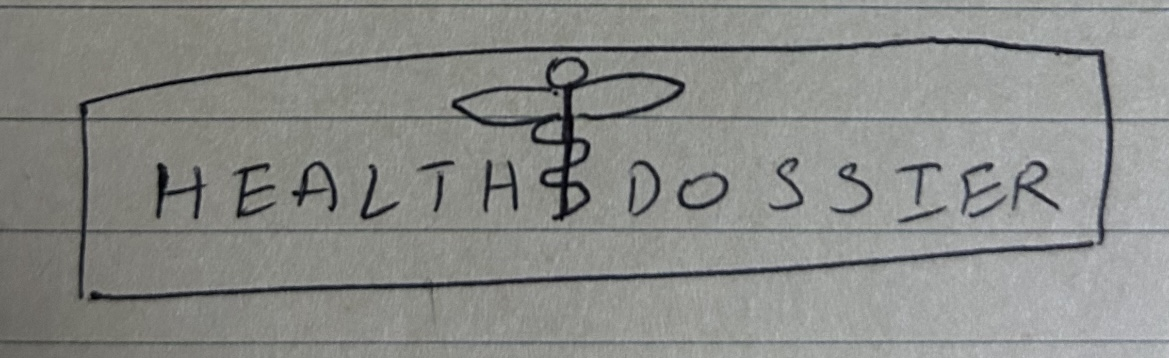 HEALTH DOSSIER